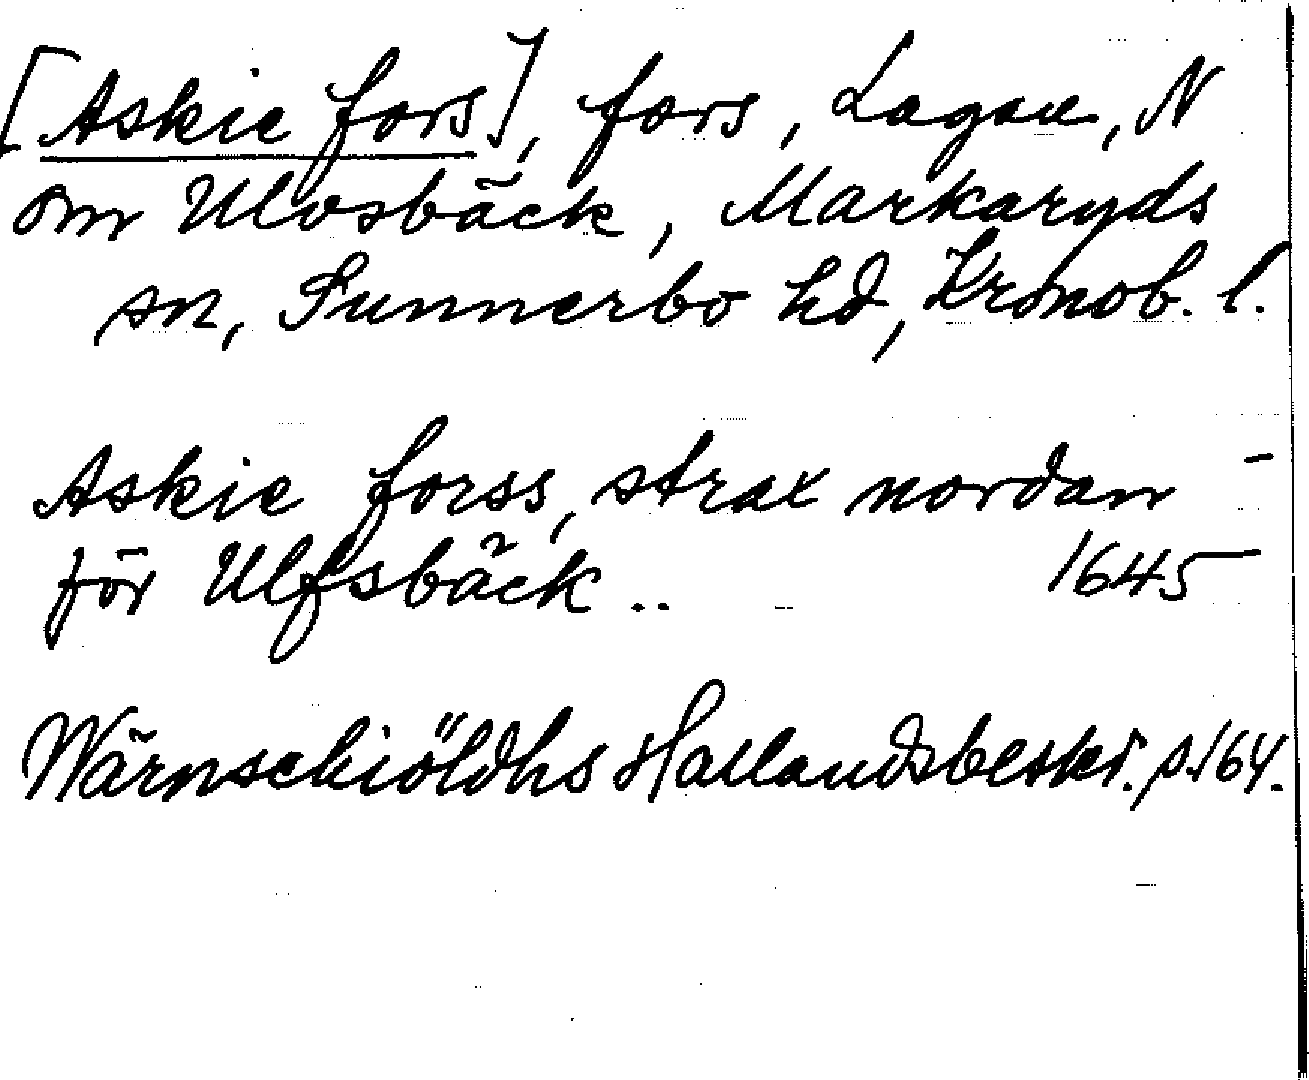 [Askie fors], fors, Lagan, N
om Ulvsbäck, Markaryds
sn, Sunnerbo hd, Kronob. l.
Askie forss, strax nordan -
för Ulfsbäck .. 1645
Wärnschiöldhs Hallandsbeskr. s. 164.